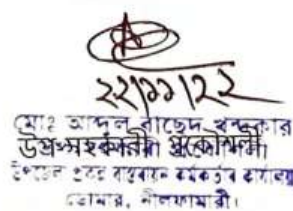 ২২/১১/২২
মোঃ আব্দুল রাছেদ খন্দকার
উপ-সহকারী প্রকৌশলী
উপজেলা প্রকল্প বাস্তবায়ন কর্মকর্তার কার্যালয়
ডোমার, নীলফামারী।